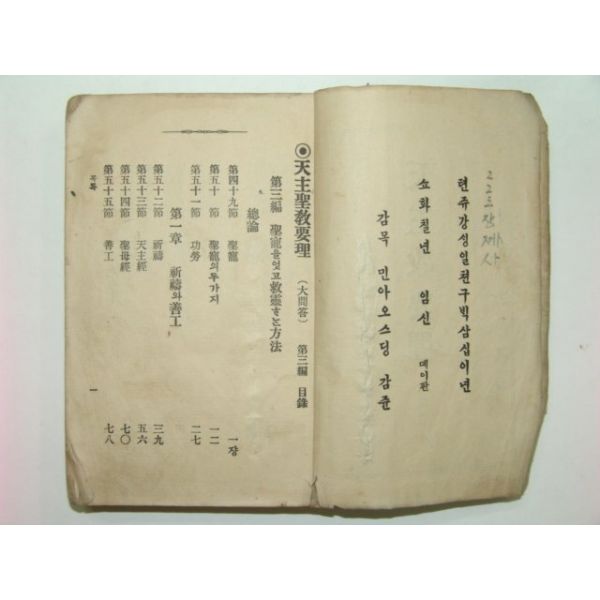 텬쥬강성일쳔구빅삼십이년
쇼화칠년 임신 뎨이판
감목 민아오스딩 감쥰
◉天主聖敎要理 (大問答) 第三編 目錄
第三編 聖寵을엇고救靈ᄒᆞᄂᆞᆫ方法
總論
第四十九節 聖寵 一쟝
第五十節 聖寵의두가지 一二
第五十一節 功勞 二七
第一章 祈禱와善工
第五十二節 祈禱 三九
第五十三節 天主經 五六
第五十四節 聖母經 七〇
第五十五節 善工 七八
목록 一